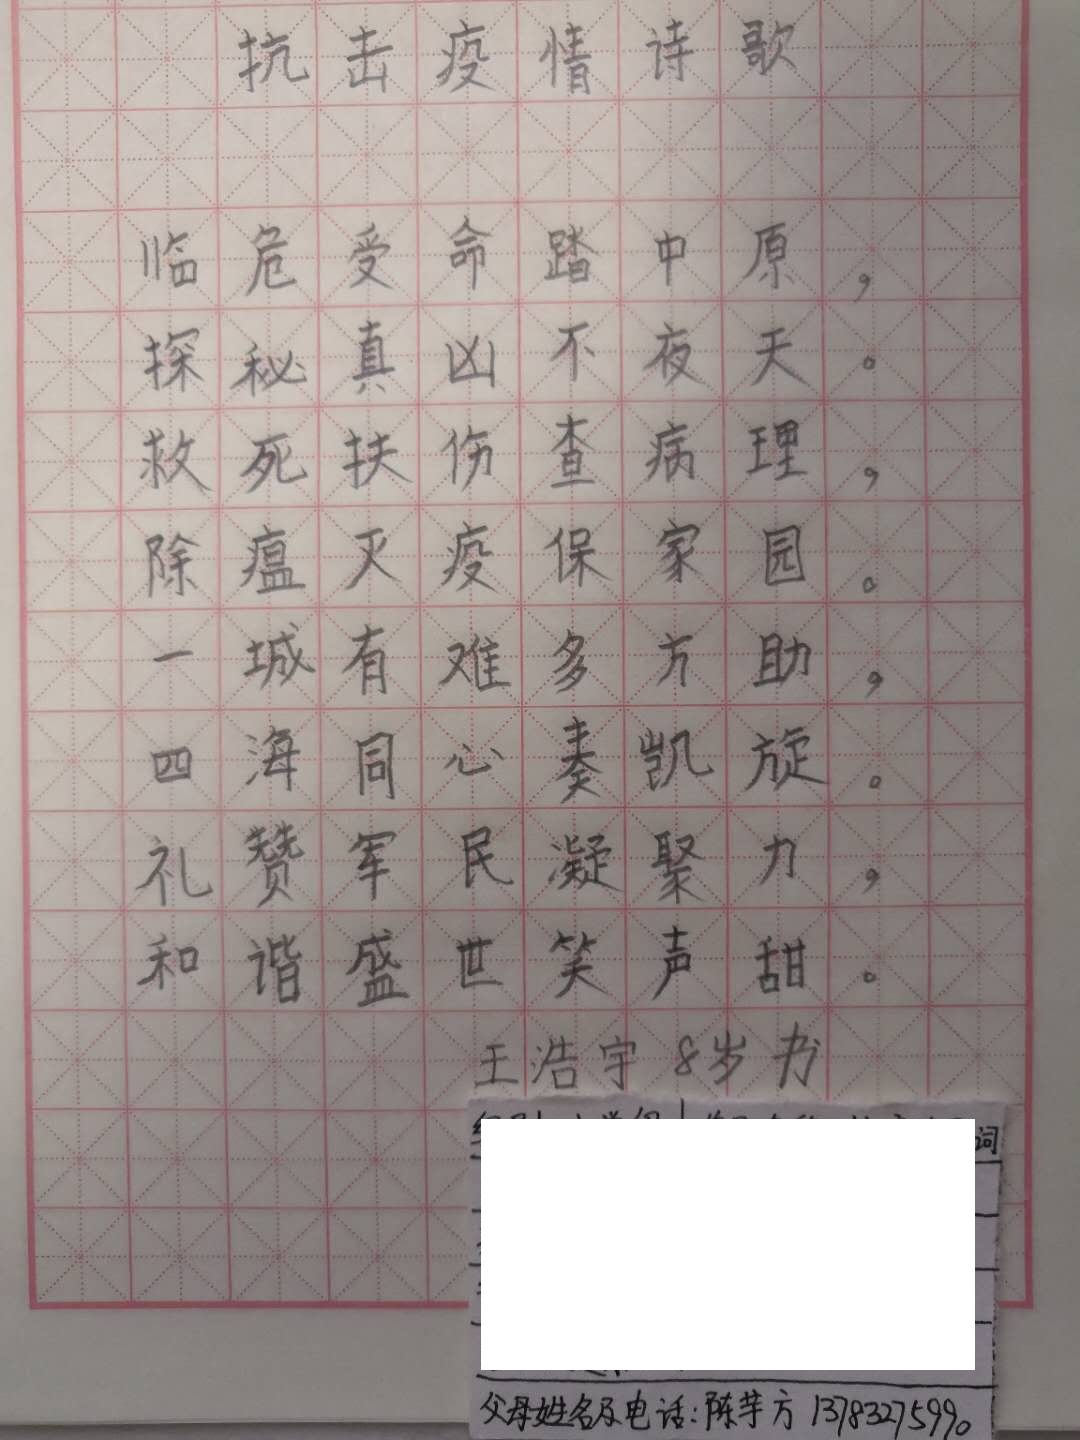 抗击疫情诗歌
临危受命踏中原，
探秘真凶不夜天。
救死扶伤查病理，
除瘟灭疫保家园。
一城有难多方助，
四海同心奏凯旋。
礼赞军民凝聚力，
和谐盛世笑声甜。
王浩宇 8岁书
词
父母姓名及电话：陈芋方 13783275990